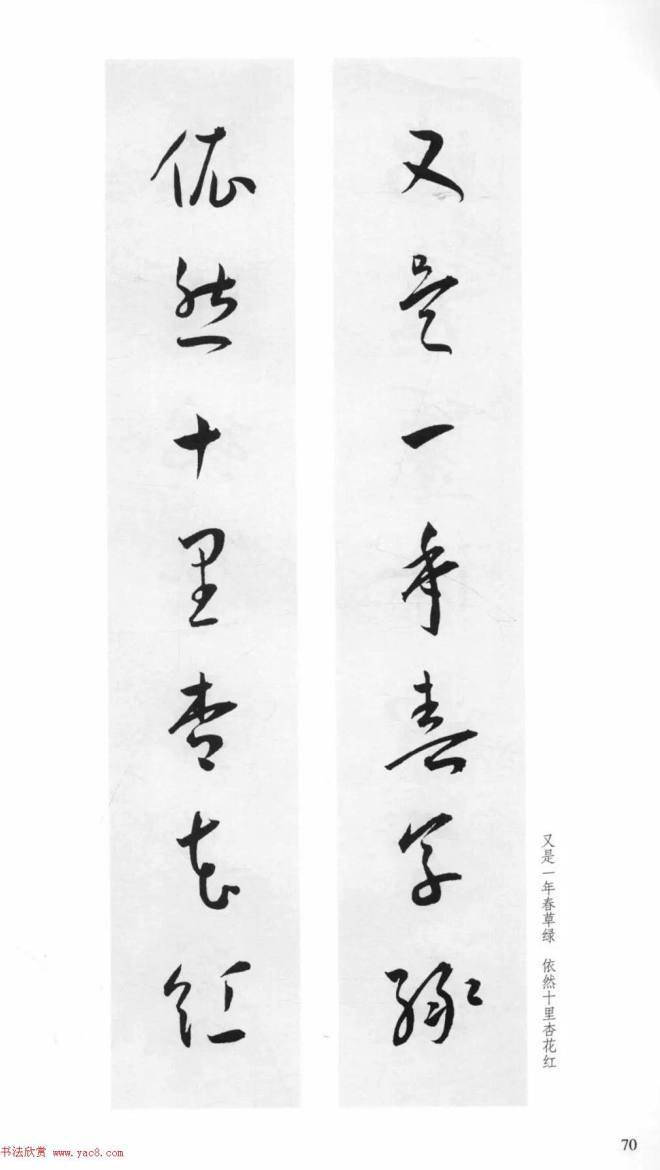 又是一年春草绿
依然十里杏花红
又是一年春草绿 依然十里杏花红
70
书法欣赏 www.yac8.com